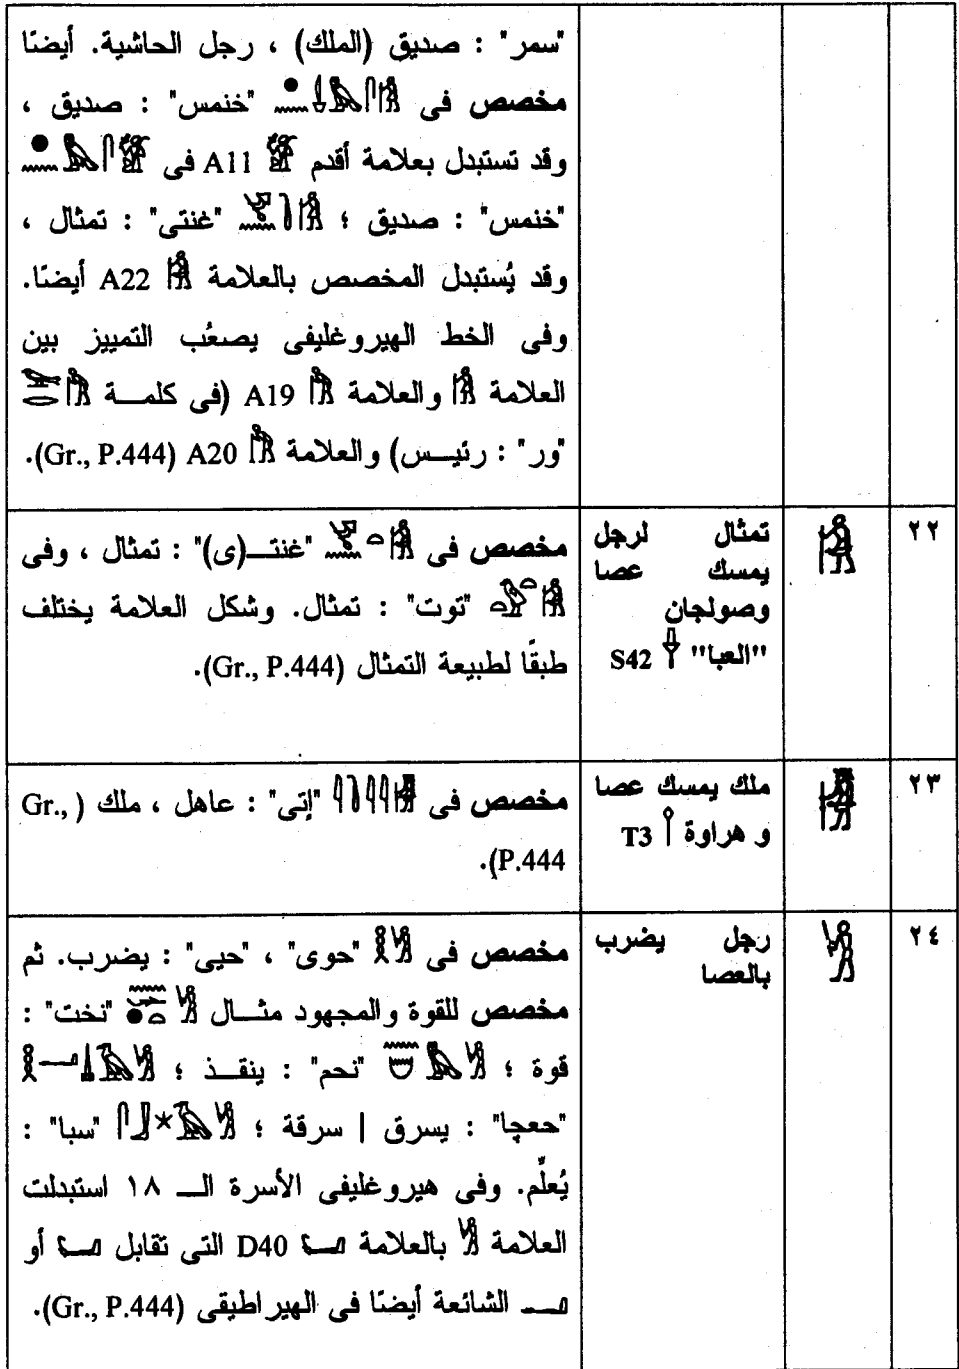 "سمر" : صديق (الملك) ، رجل الحاشية. أيضنًا
مخصص فى "خنمس" : صديق ،
وقد تستبدل بعلامة أقدم A11 فى
"خنمس" : صديق ؛ "غنتى" : تمثال ،
وقد يُستبدل المخصص بالعلامة A22 أيضنًا.
وفى الخط الهيروغليفى يصعُب التمييز بين
العلامة والعلامة A19 (فى كلمـــة
"ور" : رئيـــس) والعلامة A20 (Gr., P.444).
٢٢
تمثال لرجل
يمسك عصا
وصولجان
"العبا" S42
مخصص فى "غنتــ(ى)" : تمثال ، وفى
"توت" : تمثال. وشكل العلامة يختلف
طبقًا لطبيعة التمثال (Gr., P.444).
٢٣
ملك يمسك عصا
و هراوة T3
مخصص فى "إتى" : عاهل ، ملك (Gr.,
P.444).
٢٤
رجل يضرب
بالعصا
مخصص فى "حوى" ، "حيى" : يضرب. ثم
مخصص للقوة والمجهود مثـــال "نخت" :
قوة ؛ "نحم" : ينقـــذ ؛
"حعچا" : يسرق | سرقة ؛ "سبا" :
يُعلِّم. وفى هيروغليفى الأسرة الـــ ١٨ استبدلت
العلامة بالعلامة D40 التى تقابل أو
الشائعة أيضنًا فى الهيراطيقى (Gr., P.444).